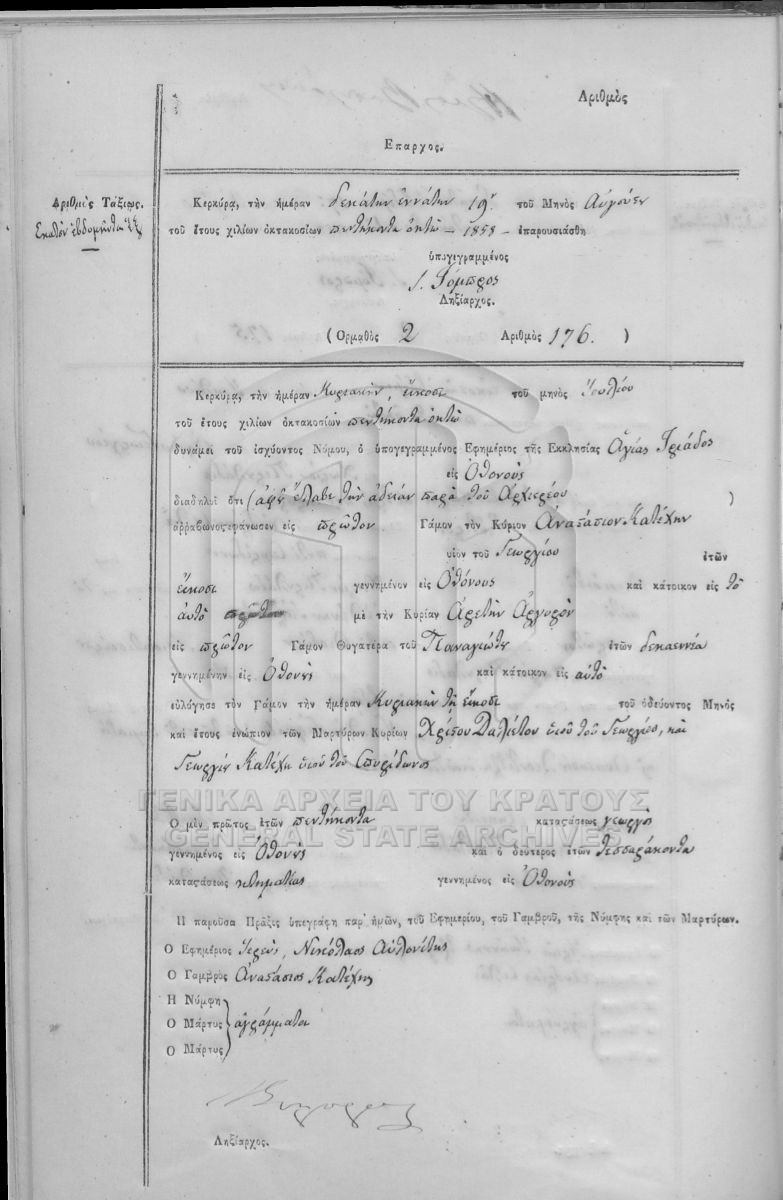 Αριθμὸς
Επαρχος.
Αριθμὸς Τάξεως.
Εκατὸν ἑβδομήντα ἓξ
Κερκύρα, τὴν ἡμέραν δεκάτην ἐννάτην 19ʳ τοῦ Μηνὸς Αὐγούστου
τοῦ ἔτους χιλίων ὀκτακοσίων πεντήκοντα ὀκτὼ — 1858 — ἐπαρουσιάσθη
ὑπογεγραμμένος
Ληξίαρχος.
(Ορμαθὸς 2 Αριθμὸς 176. )
Κερκύρα, τὴν ἡμέραν Κυριακὴν, εἴκοσι τοῦ μηνὸς Ἰουλίου
τοῦ ἔτους χιλίων ὀκτακοσίων πεντήκοντα ὀκτὼ
δυνάμει τοῦ ἰσχύοντος Νόμου, ὁ ὑπογεγραμμένος Εφημέριος τῆς Εκκλησίας Ἁγίας Τριάδος
εἰς Ὀθονοὺς
διαδηλοῖ ὅτι (ἀφ' οὗ ἔλαβε τὴν ἀδείαν παρὰ τοῦ Ἀρχιερέου )
ἀῤῥαβωνοςεφάνωσεν εἰς πρῶτον Γάμον τὸν Κύριον Ἀναστάσιον Κατέχην
υἱὸν τοῦ Γεωργίου ἐτῶν
εἴκοσι γεννημένον εἰς Ὀθόνους καὶ κάτοικον εἰς τὸ
αὐτὸ μὲ τὴν Κυρίαν Ἀρετὴν Ἀργυρὸν
εἰς πρῶτον Γάμον Θυγατέρα τοῦ Παναγιώτη ἐτῶν δεκαεννέα
γεννημένην εἰς Ὀθονοὺς καὶ κάτοικον εἰς αὐτὸ
εὐλόγησε τὸν Γάμον τὴν ἡμέραν Κυριακὴν τῇ εἴκοσι τοῦ ὁδεύοντος Μηνὸς
καὶ ἔτους ἐνώπιον τῶν Μαρτύρων Κυρίων Χρίστου Δαλιέτου υἱοῦ τοῦ Γεωργίου, καὶ
Γεωργίου Κατέχη υἱοῦ τοῦ Σπυρίδωνος
ΓΕΝΙΚΑ ΑΡΧΕΙΑ ΤΟΥ ΚΡΑΤΟΥΣ
Ο μὲν πρῶτος ἐτῶν πεντήκοντα καταςάσεως γεωργὸς
GENERAL STATE ARCHIVES
γεννημένος εἰς Ὀθονοὺς καὶ ὁ δεύτερος ἐτῶν τεσσαράκοντα
καταςάσεως κτηματίας γεννημένος εἰς Ὀθονοὺς
Η παροῦσα Πρᾶξις ὑπεγράφη παρ' ἡμῶν, τοῦ Εφημερίου, τοῦ Γαμβροῦ, τῆς Νύμφης καὶ τῶν Μαρτύρων.
Ο Εφημέριος Ἱερεὺς, Νικόλαος Αὐλονίτης
Ο Γαμβρὸς Ἀναστάσιος Κατέχης
Η Νύμφη
Ο Μάρτυς ἀγράμματοι
Ο Μάρτυς
Ληξίαρχος.